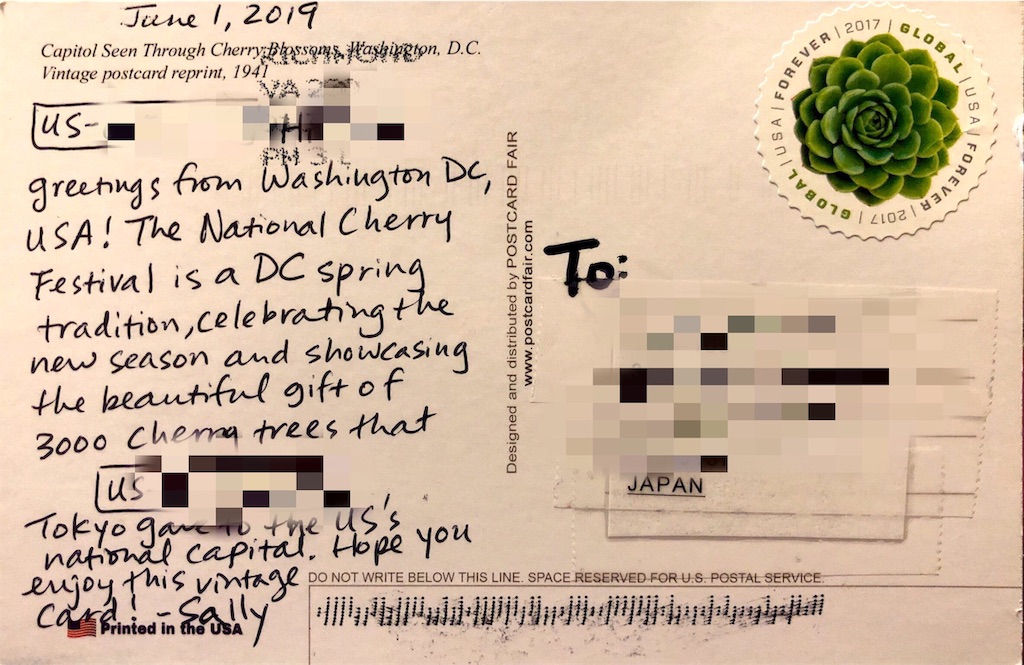 June 1, 2019
Capitol Seen Through Cherry Blossoms, Washington, D.C.
Vintage postcard reprint, 1941
RICHMOND
VA
PM
US-
Hi
greetings from Washington DC,
USA! The National Cherry
Festival is a DC spring
tradition, celebrating the
new season and showcasing
the beautiful gift of
3000 cherry trees that
US
Tokyo gave to the US's
national capital. Hope you
enjoy this vintage
card! -Sally
Printed in the USA
Designed and distributed by POSTCARD FAIR
www.postcardfair.com
GLOBAL | USA | FOREVER | 2017 | GLOBAL | USA | FOREVER | 2017 |
To:
JAPAN
DO NOT WRITE BELOW THIS LINE. SPACE RESERVED FOR U.S. POSTAL SERVICE.